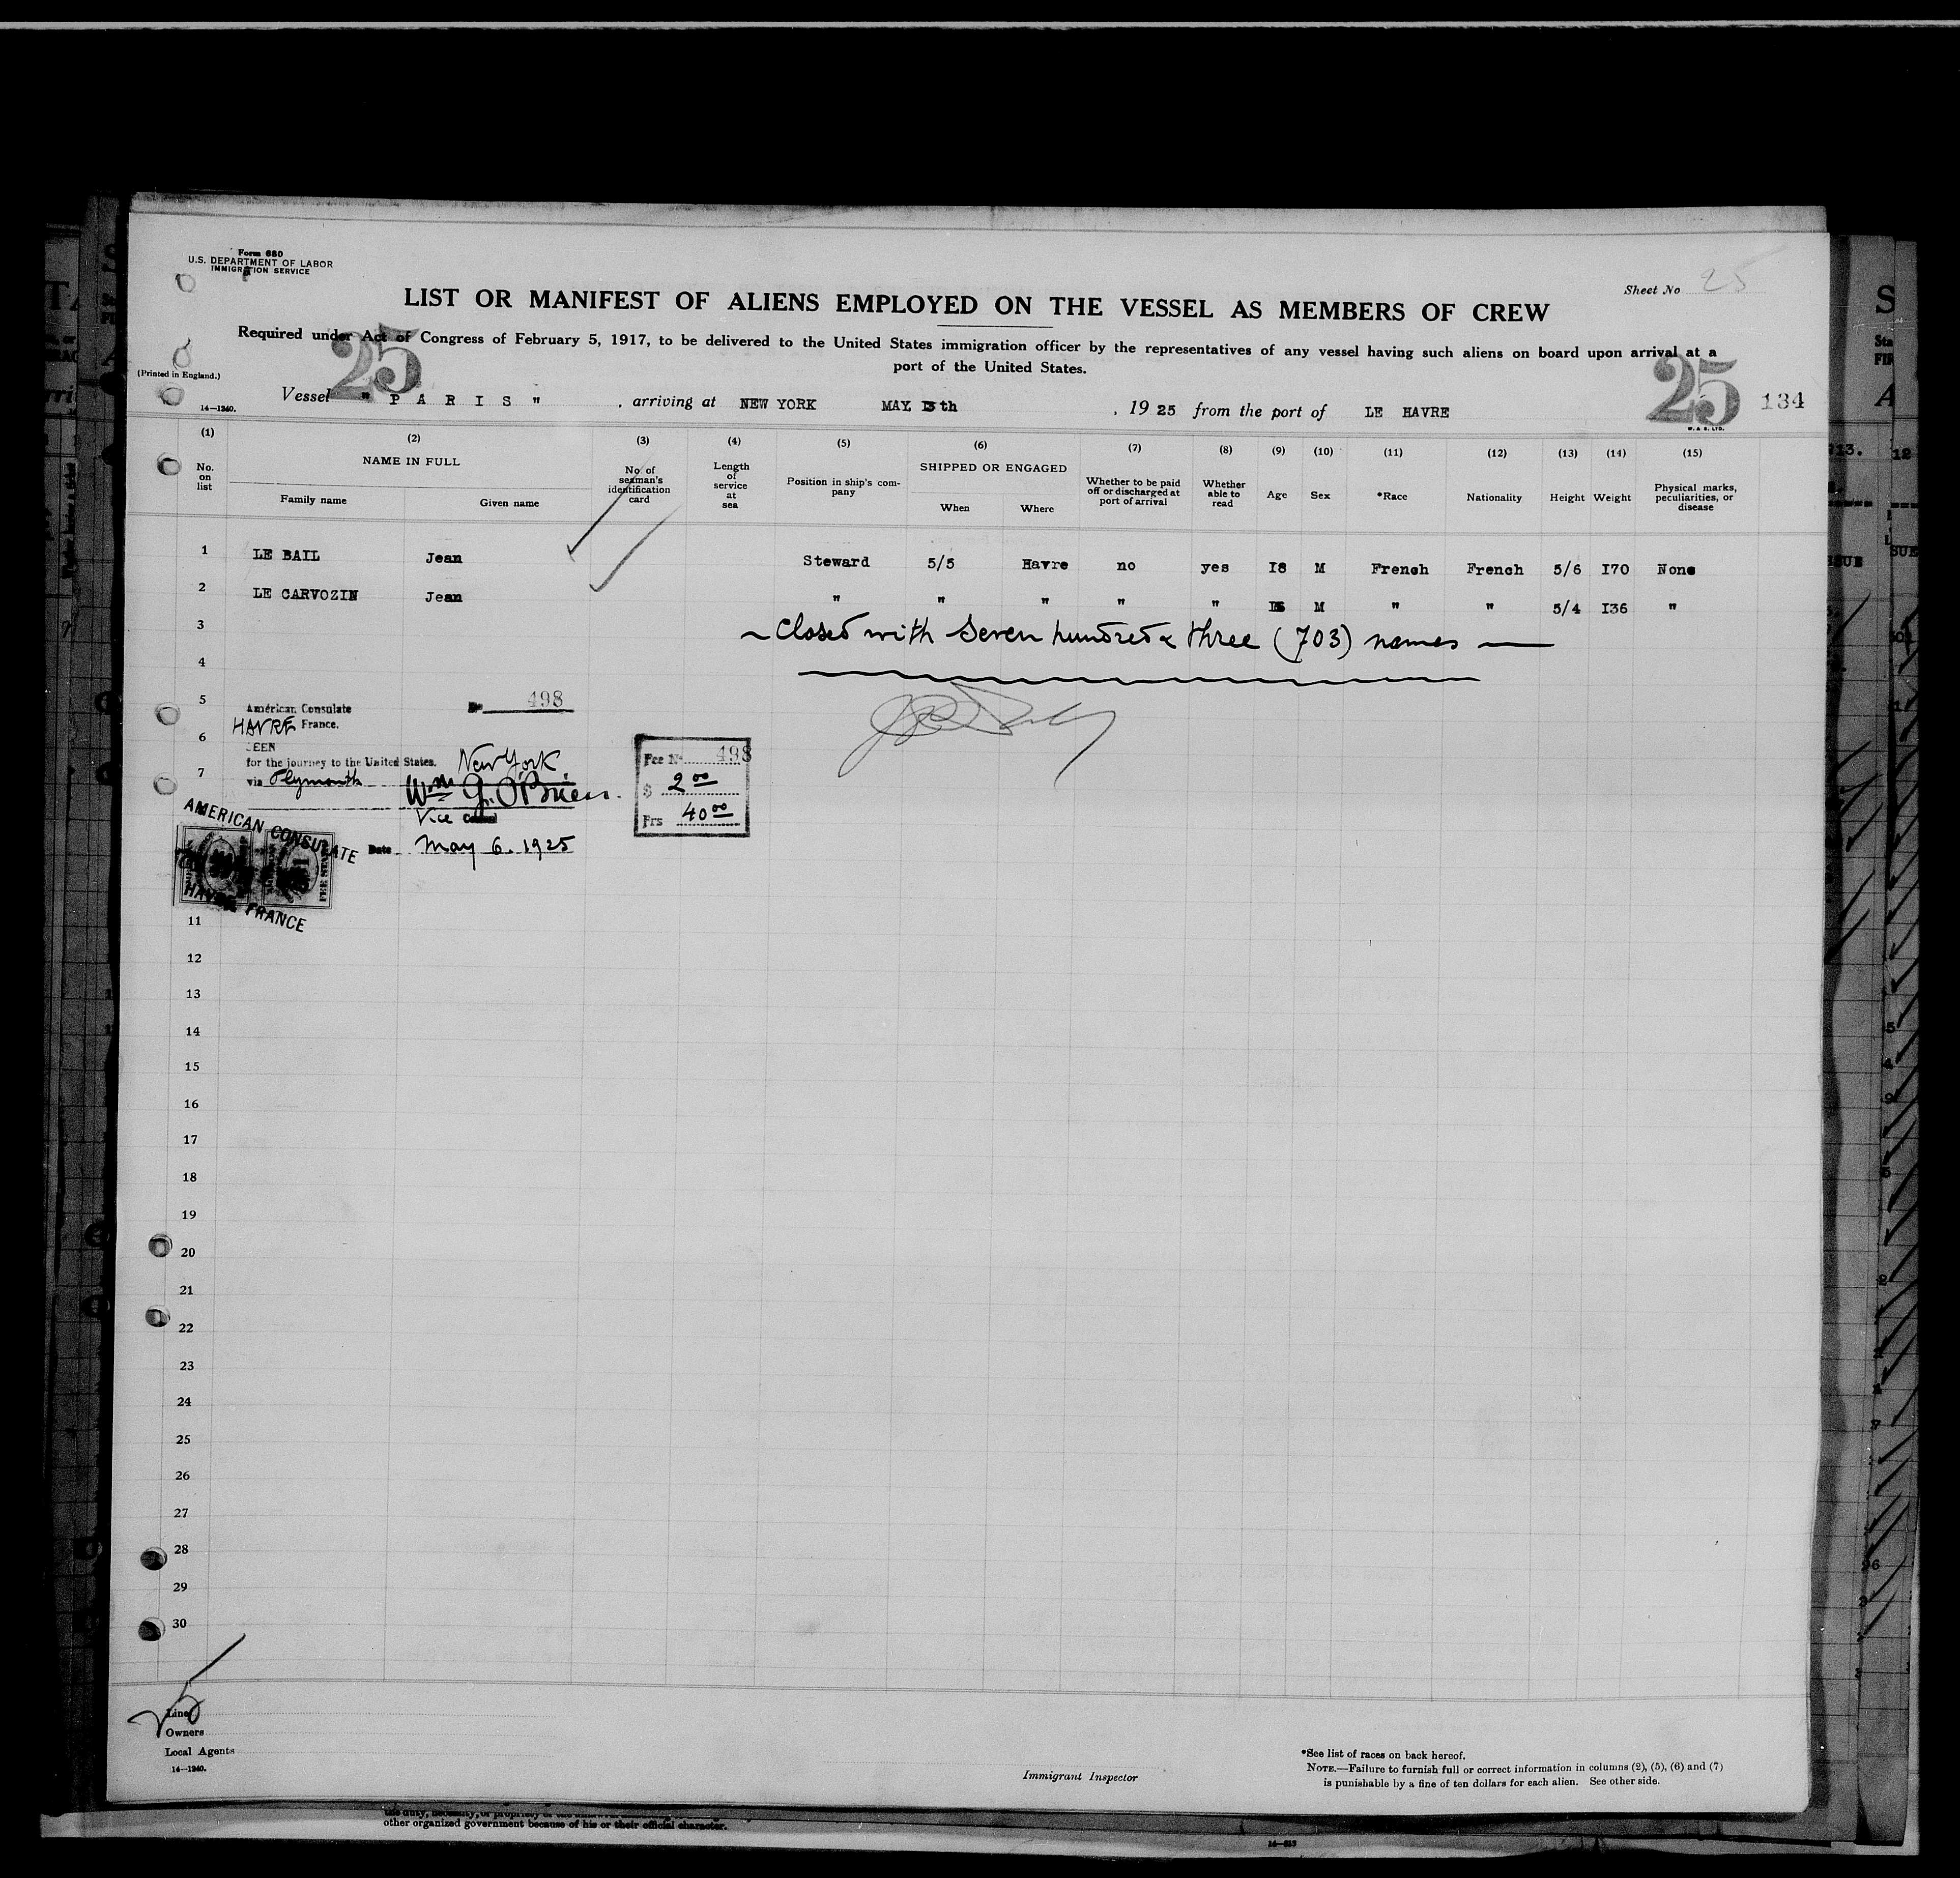 Form 680
U.S. DEPARTMENT OF LABOR
IMMIGRATION SERVICE
Sheet No 25
LIST OR MANIFEST OF ALIENS EMPLOYED ON THE VESSEL AS MEMBERS OF CREW
Required under Act of Congress of February 5, 1917, to be delivered to the United States immigration officer by the representatives of any vessel having such aliens on board upon arrival at a
port of the United States.
25
25
(Printed in England.)
14—1240.
Vessel " P A R I S " , arriving at NEW YORK MAY th , 1925 from the port of LE HAVRE
134
W. & S. LTD.
(1) (2) (3) (4) (5) (6) (7) (8) (9) (10) (11) (12) (13) (14) (15)
No. on list
NAME IN FULL
Family name Given name
No of seaman's identification card
Length of service at sea
Position in ship's company
SHIPPED OR ENGAGED
When Where
Whether to be paid off or discharged at port of arrival
Whether able to read
Age Sex *Race Nationality Height Weight
Physical marks, peculiarities, or disease
1 LE BAIL Jean Steward 5/5 Havre no yes I8 M French French 5/6 I70 None
2 LE CARVOZIN Jean " " " " " M " " 5/4 I36 "
3 ~ Closed with Seven hundred & three (703) names —
4
5
American Consulate No 498
HAVRE France.
6
SEEN
for the journey to the United States. New York
7
via Plymouth Wm G. O'Brien
Vice
Date May 6. 1925
Fee No 498
$ 2 00
Frs 40 00
AMERICAN CONSULATE
HAVRE FRANCE
11
12
13
14
15
16
17
18
19
20
21
22
23
24
25
26
27
28
29
30
25
Line
Owners
Local Agents
14—1240.
Immigrant Inspector
*See list of races on back hereof.
NOTE.—Failure to furnish full or correct information in columns (2), (5), (6) and (7)
is punishable by a fine of ten dollars for each alien. See other side.
other organized government because of his or their official character.